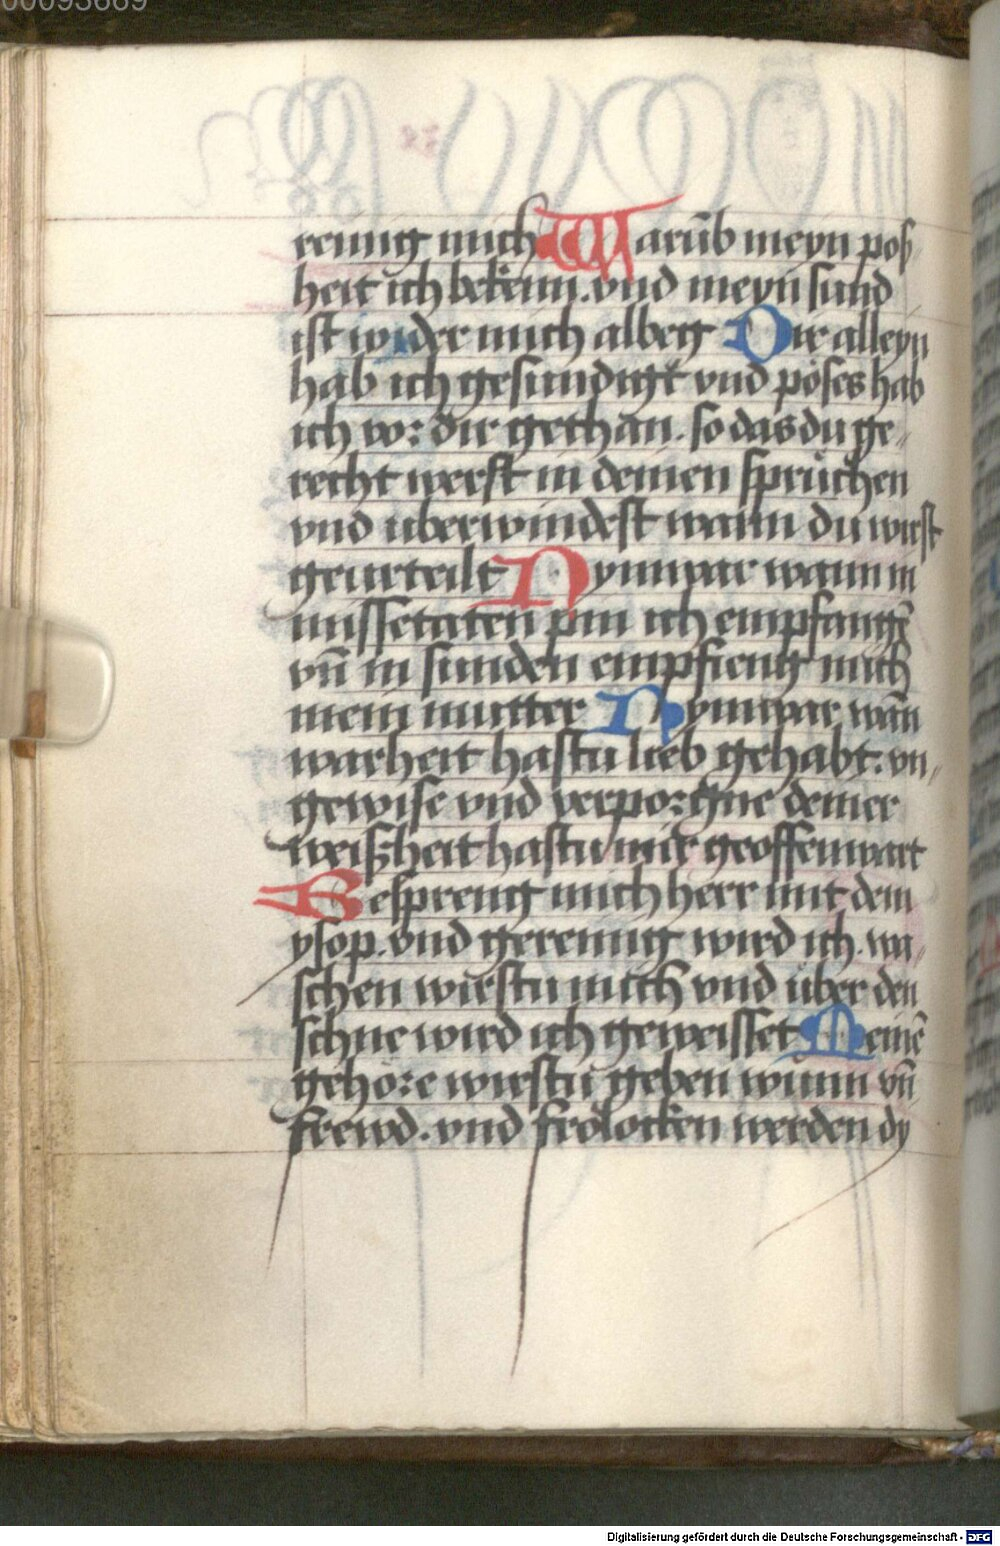 00093669
reinig mich Warūb meyn pos
heit ich bekenn. vnd meyn sund
ist wider mich albeg Dir alleyn
hab ich gesundigt vnd pöses hab
ich vor dir gethan. so das du ge„
recht werst in deinen sprüchen
vnd uberwindest wann du wirst
geurteilt Nymwar wann in
missetaten pin ich empfangē
vn̄ in sunden empfieng mich
mein mutter Nymwar wān
warheit hastu lieb gehabt. vn„
gewise vnd verporgne deiner
weißheit hastu mir geoffenwart
Bespreng mich herr mit dem
ysop. vnd gereinig wird ich. wa„
schen wirstu mich vnd über den
schne wird ich geweisset Meinē
gehöre wirstu geben wunn vn̄
frewd. vnd frölocken werden dy
Digitalisierung gefördert durch die Deutsche Forschungsgemeinschaft - DFG